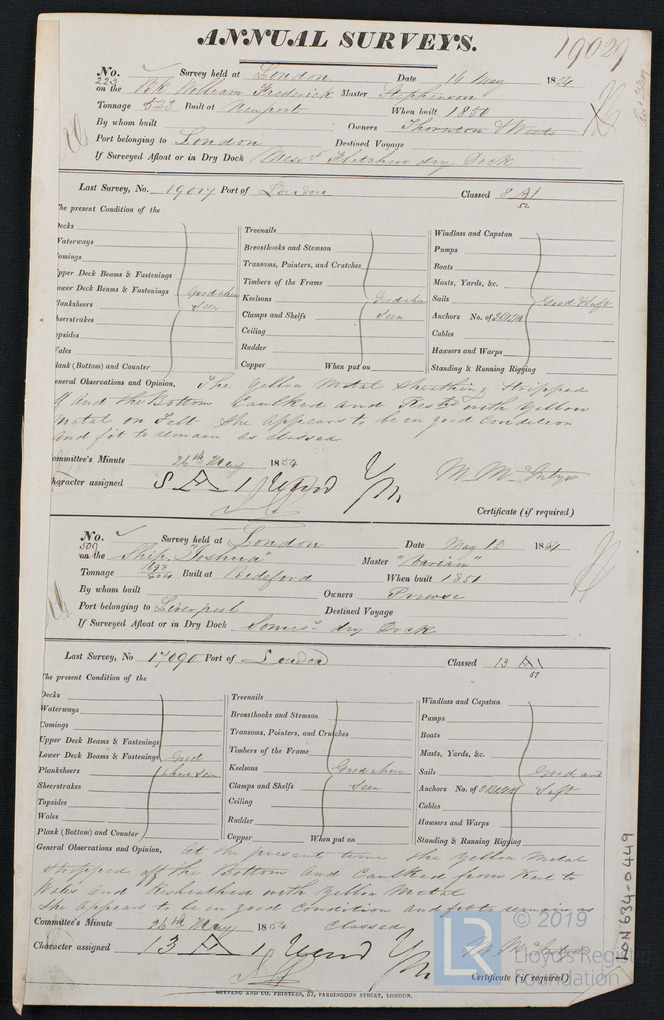 ANNUAL SURVEYS.
19029
No. 223 Survey held at London Date 16 May 1854
on the Bk William Frederick Master Stephenson
Tonnage 523 Built at Newport When built 1850
By whom built Owners Thornton & West
Port belonging to London Destined Voyage
If Surveyed Afloat or in Dry Dock Messrs Fletchers dry Dock
Last Survey, No. 19017 Port of London Classed 8 A1
52
The present Condition of the
Decks
Waterways
Comings
Upper Deck Beams & Fastenings
Lower Deck Beams & Fastenings Good where
Planksheers Seen
Sheerstrakes
Topsides
Wales
Plank (Bottom) and Counter
Treenails
Breasthooks and Stemson
Transoms, Pointers, and Crutches
Timbers of the Frame
Keelsons Good where
Clamps and Shelfs Seen
Ceiling
Rudder
Copper When put on
Windlass and Capstan
Pumps
Boats
Masts, Yards, &c.
Sails Good & Suft
Anchors No. of
Cables
Hawsers and Warps
Standing & Running Rigging
General Observations and Opinion, The Yellow Metal Sheathing Stripped
off and the Bottom Caulked and with Yellow
Metal on Felt She appears to be in good Condition
and fit to remain as classed
Committee's Minute 26th May 1854
Character assigned 8 A 1
Certificate (if required)
No. 509 Survey held at London Date May 12 1854
on the Ship. "Joshua" Master
Tonnage Built at Bideford When built 1851
By whom built Owners Prowse
Port belonging to Liverpool Destined Voyage
If Surveyed Afloat or in Dry Dock Somes' dry Dock
Last Survey, No 17090 Port of London Classed 13 A1
51
The present Condition of the
Decks
Waterways
Comings
Upper Deck Beams & Fastenings
Lower Deck Beams & Fastenings Good
Planksheers where seen
Sheerstrakes
Topsides
Wales
Plank (Bottom) and Counter
Treenails
Breasthooks and Stemson
Transoms, Pointers, and Crutches
Timbers of the Frame
Keelsons Good where
Clamps and Shelfs Seen
Ceiling
Rudder
Copper When put on
Windlass and Capstan
Pumps
Boats
Masts, Yards, &c.
Sails Good and
Anchors No. of Suft
Cables
Hawsers and Warps
Standing & Running Rigging
General Observations and Opinion, At the present time the Yellow Metal
Stripped off the Bottom and Caulked from Keel to
Wales and Resheathed with Yellow Metal
She appears to be in good Condition and fit to remain as
Classed
Committee's Minute 26th May 1854
Character assigned 13 A 1
Certificate (if required)
SEYFANG AND CO. PRINTERS, 57, FARRINGDON STREET, LONDON.
LON 634-0449
LR
© 2019
Lloyd's Register
Foundation